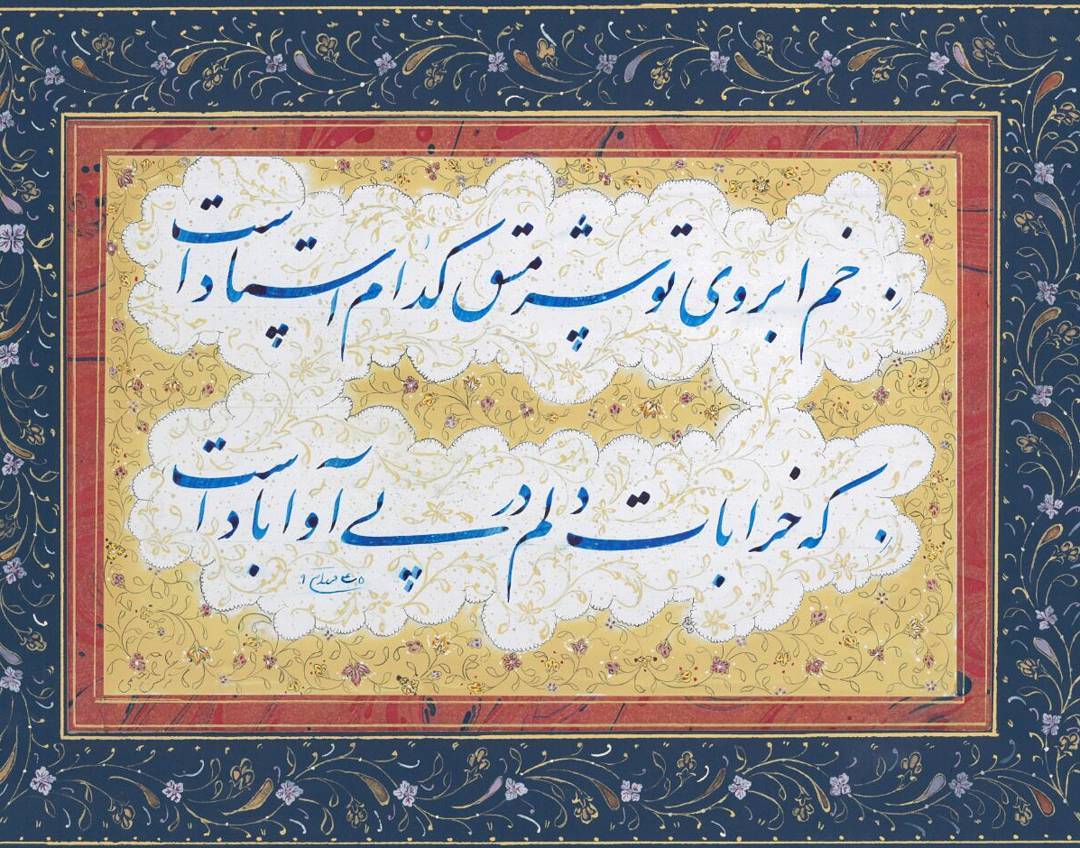 خم ابروی تو سرمشق کدام استاد است
که خرابات دلم در پی آو اباد است